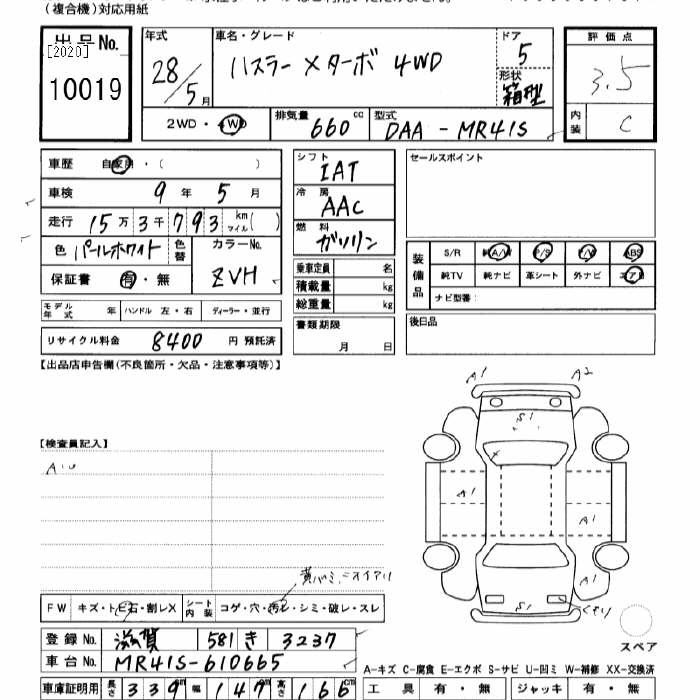 (複合機)対応用紙
出品No.
[2020]
10019
年式
28/5月
車名・グレード
ハスラー Xターボ 4WD
ドア
5
形状
箱型
評価点
3.5
内装
C
2WD・4WD
排気量
660cc
型式
DAA-MR41S
車歴 自家用・( )
車検 9年5月
走行 15万3千793 km マイル( )
色 パールホワイト 色替
カラーNo.
ZVH
保証書 有・無
モデル年式 年 ハンドル 左・右 ディーラー・並行
リサイクル料金 8400 円 預託済
シフト
IAT
冷房
AAC
燃料
ガソリン
乗車定員 名
積載量 kg
総重量 kg
書類期限
月 日
セールスポイント
装備品
S/R 純A/W P/S P/W ABS
純TV 純ナビ 革シート 外ナビ エアB
ナビ型番:
後日品
【出品店申告欄(不良箇所・欠品・注意事項等)】
A1 A2
S1
【検査員記入】
A1
A1
A1
S1
スペア
FW キズ・トビ石・割レX シート内装 コゲ・穴・汚レ・シミ・破レ・スレ
登録No. 滋賀 581 き 3237
車台No. MR41S-610665
車庫証明用 長さ 339cm 幅 147cm 高さ 166cm
A-キズ C-腐食 E-エクボ S-サビ U-凹ミ W-補修 XX-交換済
工具 有・無 ジャッキ 有・無